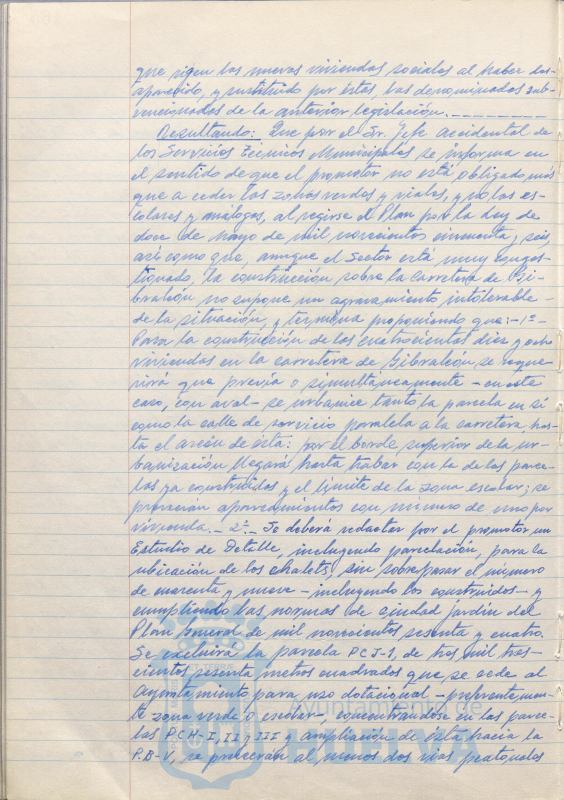 que rigen las nuevas viviendas sociales al haber des-
aparecido, y sustituido por éstas las denominadas sub-
vencionadas de la anterior legislación.-
Resultando: Que por el Sr. Jefe accidental de
los Servicios Técnicos Municipales se informa en
el sentido de que el promotor no está obligado más
que a ceder las zonas verdes y viales, y no las es-
colares y análogos, al regirse el Plan por la Ley de
doce de Mayo de mil novecientos cincuenta y seis,
así como que, aunque el Sector está muy conges-
tionado, la construcción sobre la carretera de Gi-
braleón no supone un agravamiento intolerable-
de la situación, y termina proponiendo que:-1º-
Para la construcción de las cuatrocientas diez y ocho
viviendas en la carretera de Gibraleón, se reque-
rirá que previa o simultáneamente - en este
caso, con aval - se urbanice tanto la parcela en sí
como la calle de servicio paralela a la carretera, has-
ta el arcén de ésta: por el borde superior de la ur-
banización llegará hasta trabar con la de las parce-
las ya construidas y el límite de la zona escolar; se
preverán aparcamientos con mínimo de uno por
vivienda.- 2º- Se deberá redactar por el promotor un
Estudio de Detalle, incluyendo parcelación, para la
ubicación de los chalets, sin sobrepasar el número
de cuarenta y nueve - incluyendo los construidos - y
cumpliendo las normas de ciudad jardín del
Plan General de mil novecientos sesenta y cuatro.
Se excluirá la parcela PCJ-1, de tres mil tres-
cientos sesenta metros cuadrados que se cede al
Ayuntamiento para uso dotacional - preferentemen-
te zona verde o escolar -, concentrándose en las parce-
las PCH-I, II y III y ampliación de ésta hacia la
P.B-V, se preverán al menos dos vías peatonales
Ayuntamiento de
HUELVA